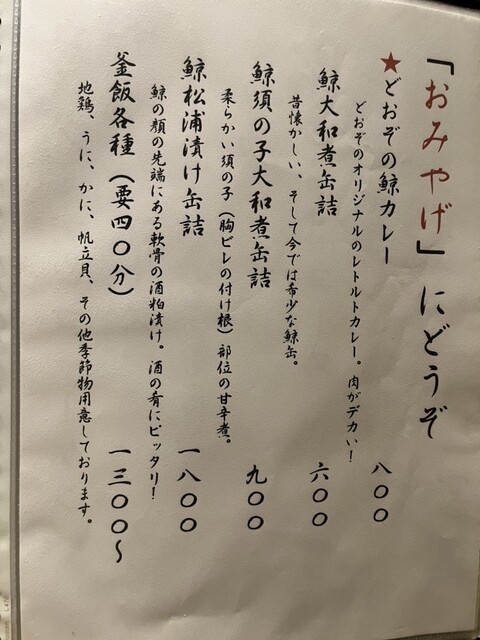 「おみやげ」にどうぞ
★どおぞの鯨カレー 八〇〇
どおぞのオリジナルのレトルトカレー。肉がデカい！
鯨大和煮缶詰 六〇〇
昔懐かしい、そして今では希少な鯨缶。
鯨須の子大和煮缶詰 九〇〇
柔らかい須の子（胸ビレの付け根）部位の甘辛煮。
鯨松浦漬け缶詰 一八〇〇
鯨の顔の先端にある軟骨の酒粕漬け。酒の肴にピッタリ！
釜飯各種（要四〇分） 一三〇〇～
地鶏、うに、かに、帆立貝、その他季節物用意しております。